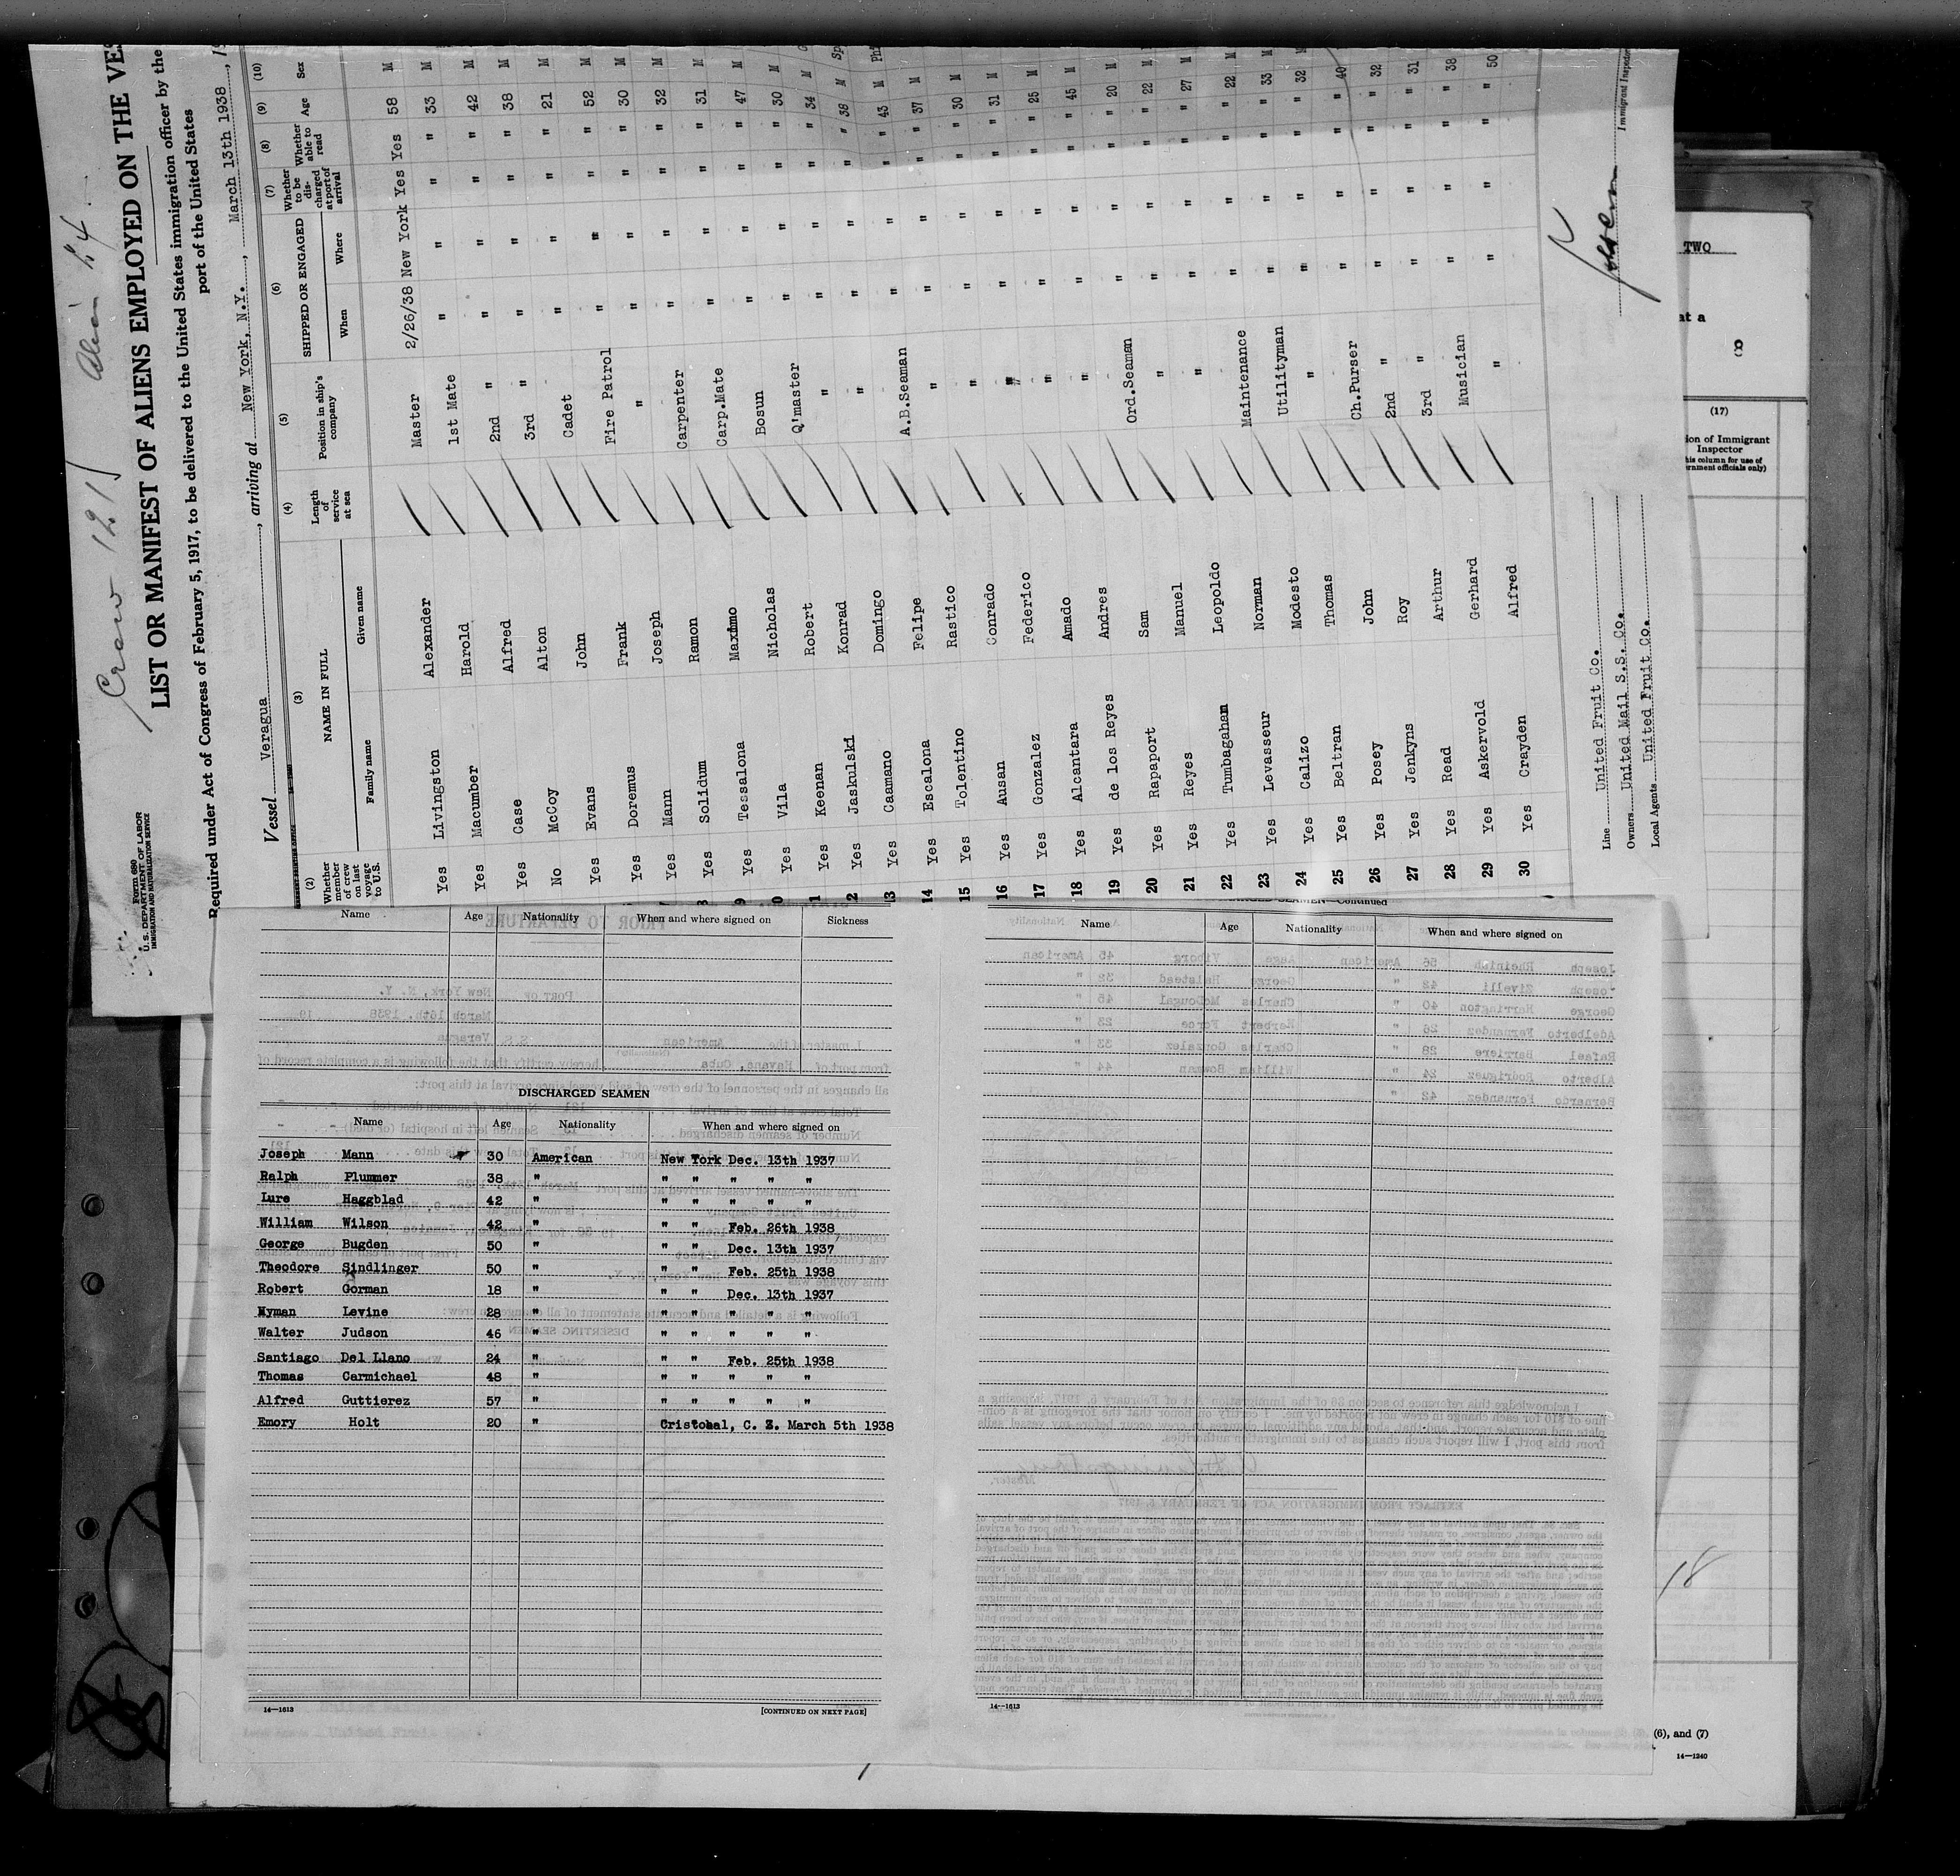 Crew 121
Form 680
U. S. DEPARTMENT OF LABOR
IMMIGRATION AND NATURALIZATION SERVICE
LIST OR MANIFEST OF ALIENS EMPLOYED ON THE VES
Required under Act of Congress of February 5, 1917, to be delivered to the United States immigration officer by the
port of the United States
Vessel Veragua, arriving at New York, N.Y., March 13th 1938, 19
(2) (3) (4) (5) (6) (7) (8) (9) (10)
Whether member of crew on last voyage to U.S. NAME IN FULL Family name Given name Length of service at sea Position in ship's company SHIPPED OR ENGAGED When Where Whether to be discharged at port of arrival Whether able to read Age Sex
Yes Livingston Alexander Master 2/26/38 New York Yes Yes 58 M
Yes Macumber Harold 1st Mate " " " " 33 M
Yes Case Alfred 2nd " " " " " 42 M
No McCoy Alton 3rd " " " " " 38 M
Yes Evans John Cadet " " " " 21 M
Yes Doremus Frank Fire Patrol " " " " 52 M
Yes Mann Joseph " " " " " 30 M
8 Yes Solidum Ramon Carpenter " " " " 32 M
9 Yes Tessalona Maximo Carp.Mate " " " " 31 M
0 Yes Vila Nicholas Bosun " " " " 47 M
1 Yes Keenan Robert Q'master " " " " 30 M
2 Yes Jaskulski Konrad " " " " " 34 M
13 Yes Caamano Domingo " " " " " 38 M Sp
14 Yes Escalona Felipe A.B.Seaman " " " " 43 M Phi
15 Yes Tolentino Rastico " " " " " 37 M
16 Yes Ausan Conrado " " " " " 30 M
17 Yes Gonzalez Federico " " " " " 31 M
18 Yes Alcantara Amado " " " " " 25 M
19 Yes de los Reyes Andres " " " " " 45 M
20 Yes Rapaport Sam Ord.Seaman " " " " 20 M
21 Yes Reyes Manuel " " " " " 22 M
22 Yes Tumbagahan Leopoldo " " " " " 27 M
23 Yes Levasseur Norman Maintenance " " " " 22 M
24 Yes Calizo Modesto Utilityman " " " " 33 M
25 Yes Beltran Thomas " " " " " 32 M
26 Yes Posey John Ch.Purser " " " " 40
27 Yes Jenkyns Roy 2nd " " " " " 32
28 Yes Read Arthur 3rd " " " " " 31
29 Yes Askervold Gerhard Musician " " " " 38
30 Yes Crayden Alfred " " " " " 50
Line United Fruit Co.
Owners United Mail S.S. Co.
Local Agents United Fruit Co.
Immigrant Inspector
TWO
at a
(17)
ion of Immigrant
Inspector
his column for use of
ernment officials only)
18
(6), and (7)
14—1240
Name Age Nationality When and where signed on Sickness
DISCHARGED SEAMEN
Name Age Nationality When and where signed on
Joseph Mann 30 American New York Dec. 13th 1937
Ralph Plummer 38 " " " " " "
Lure Haggblad 42 " " " " " "
William Wilson 42 " " " Feb. 26th 1938
George Bugden 50 " " " Dec. 13th 1937
Theodore Sindlinger 50 " " " Feb. 25th 1938
Robert Gorman 18 " " " Dec. 13th 1937
Myman Levine 28 " " " " " "
Walter Judson 46 " " " " " "
Santiago Del Llano 24 " " " Feb. 25th 1938
Thomas Carmichael 48 " " " " " "
Alfred Guttierez 57 " " " " " "
Emory Holt 20 " Cristobal, C. Z. March 5th 1938
14—1613
[CONTINUED ON NEXT PAGE]
SEAMEN—Continued
Name Age Nationality When and where signed on
14—1613